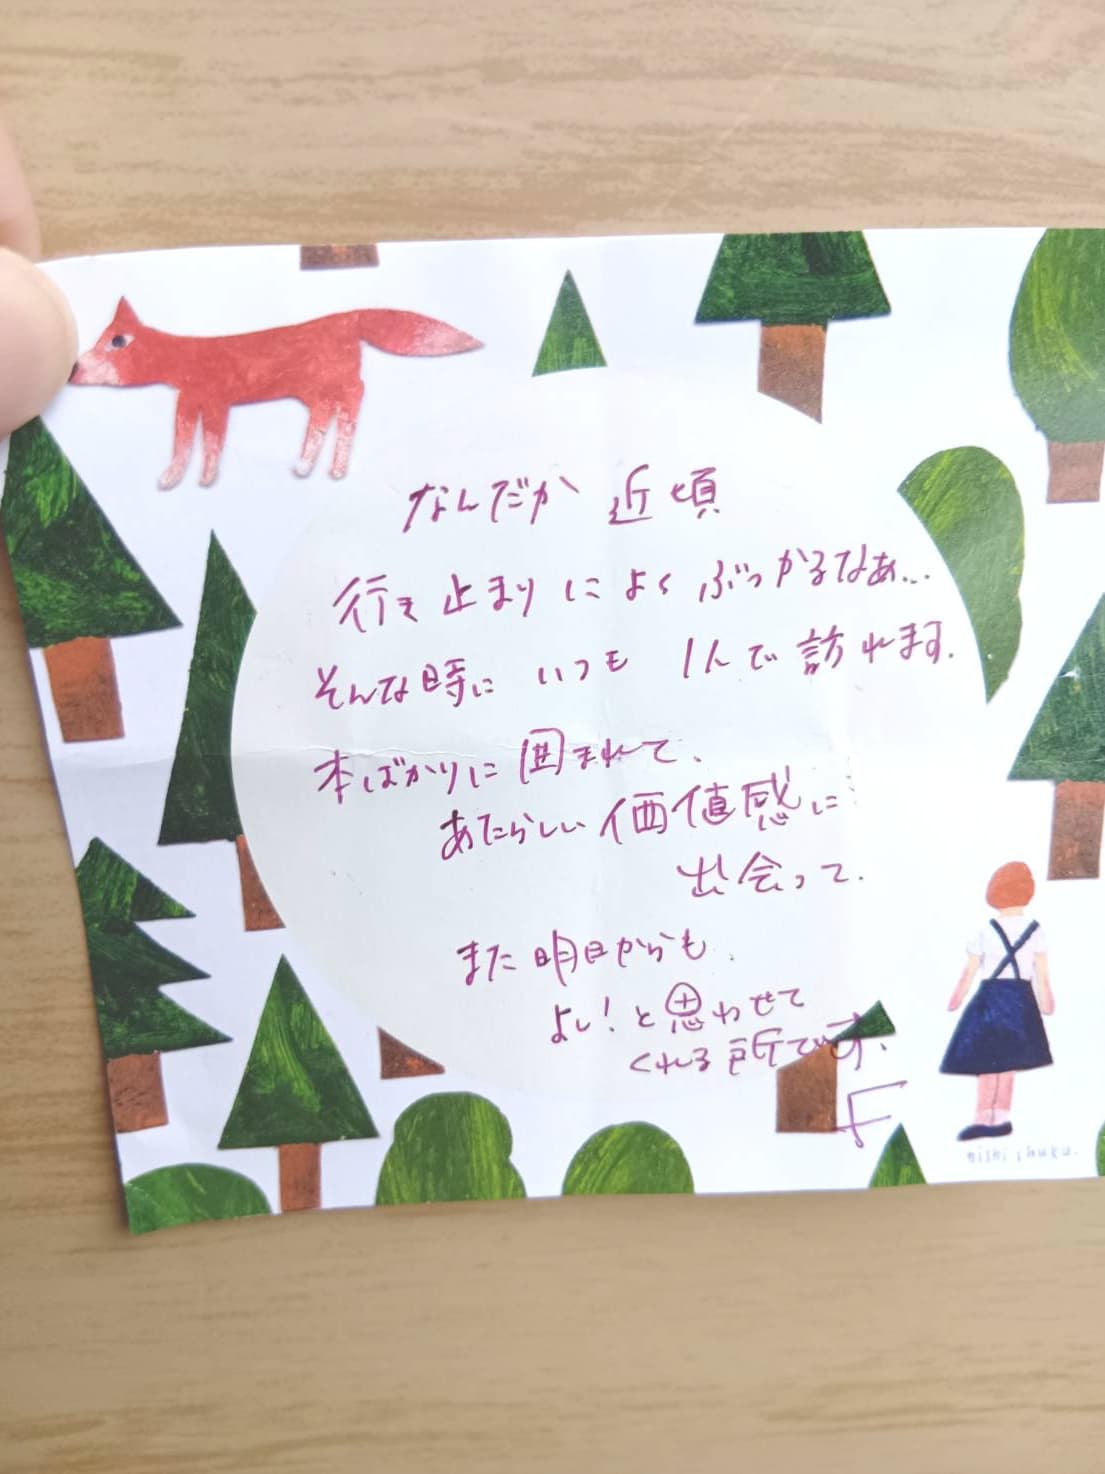 なんだか 近頃
行き止まりに よく ぶつかるなぁ...
そんな時に いつも 1人で 訪れます.
本ばかりに 囲まれて、
あたらしい 価値感に
出会って.
また 明日からも
よし! と 思わせて
くれる 所です.
F